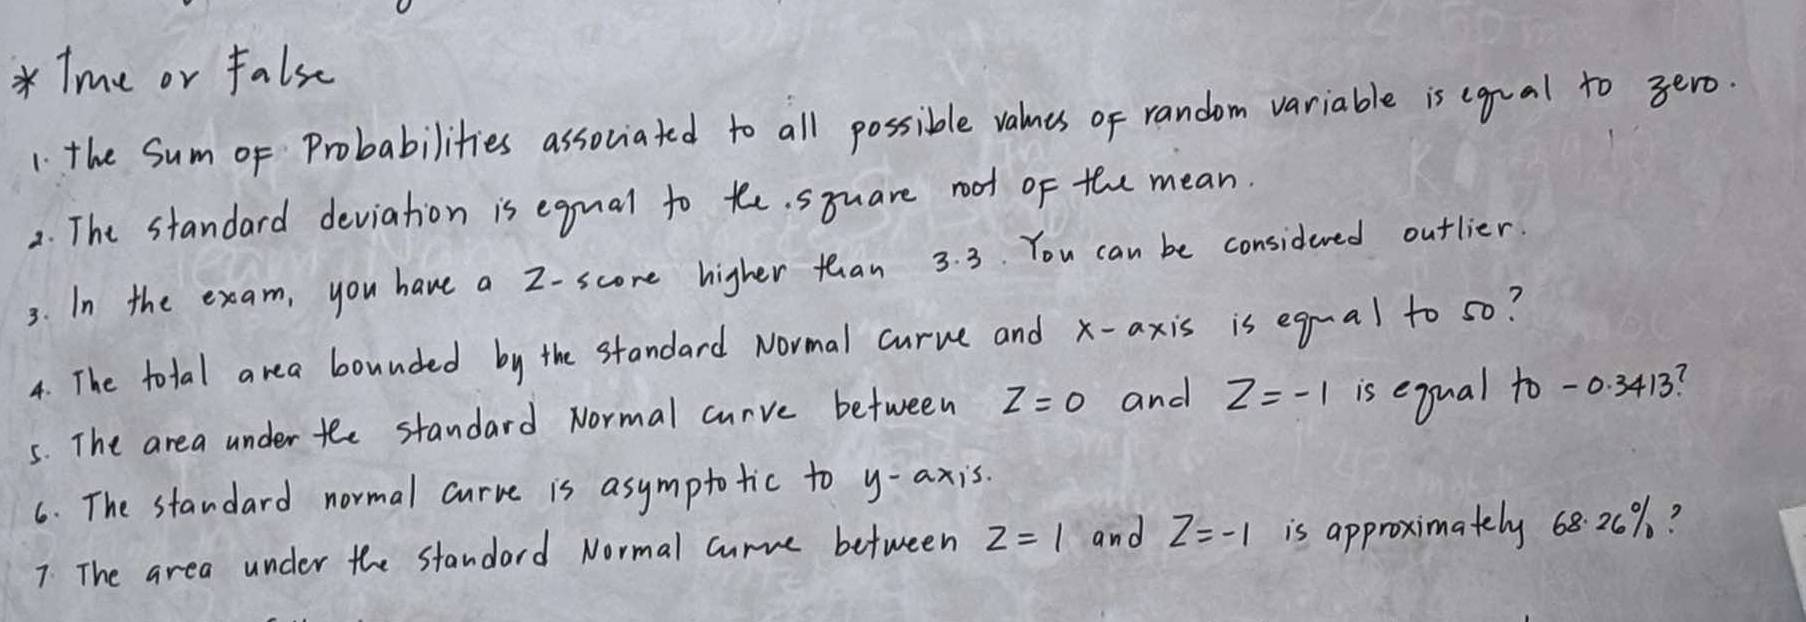 * True or False
1. the Sum of Probabilities associated to all possible values of random variable is equal to zero.
2. The standard deviation is equal to the square root of the mean.
3. In the exam, you have a Z-score higher than 3.3. You can be considered outlier.
4. The total area bounded by the standard Normal curve and x-axis is equal to 50?
5. The area under the standard Normal curve between Z=0 and Z=-1 is equal to -0.3413?
6. The standard normal curve is asymptotic to y-axis.
7. The area under the standard Normal curve between Z=1 and Z=-1 is approximately 68.26%?